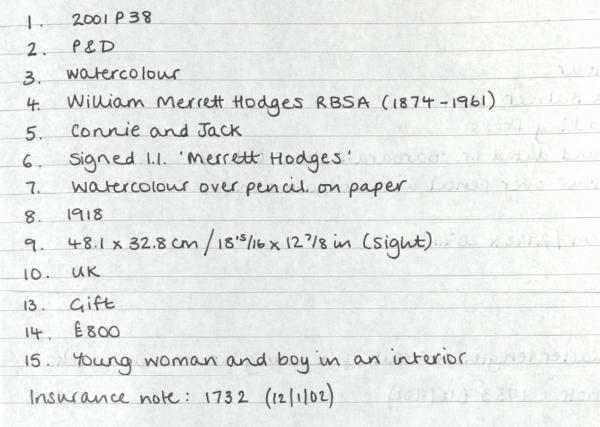 1. 2001 P 38
2. P&D
3. watercolour
4. William Merrett Hodges RBSA (1874-1961)
5. Connie and Jack
6. Signed l.l. 'Merrett Hodges'
7. Watercolour over pencil on paper
8. 1918
9. 48.1 x 32.8 cm / 18 15/16 x 12 7/8 in (sight)
10. UK
13. Gift
14. £800
15. Young woman and boy in an interior
Insurance note: 1732 (12/1/02)